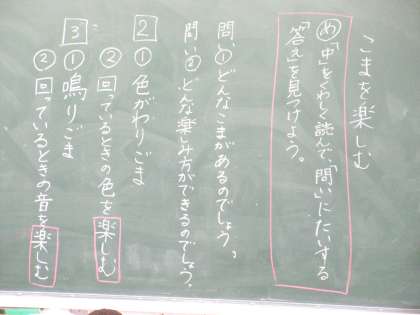 こまを楽しむ
め「中」をくわしく読んで、「問い」にたいする
「答え」を見つけよう。
問い① どんなこまがあるのでしょう。
問い② どんな楽しみ方ができるのでしょう。
2 ① 色がわりごま
② 回っているときの色を楽しむ
3 ① 鳴りごま
② 回っているときの音を楽しむ